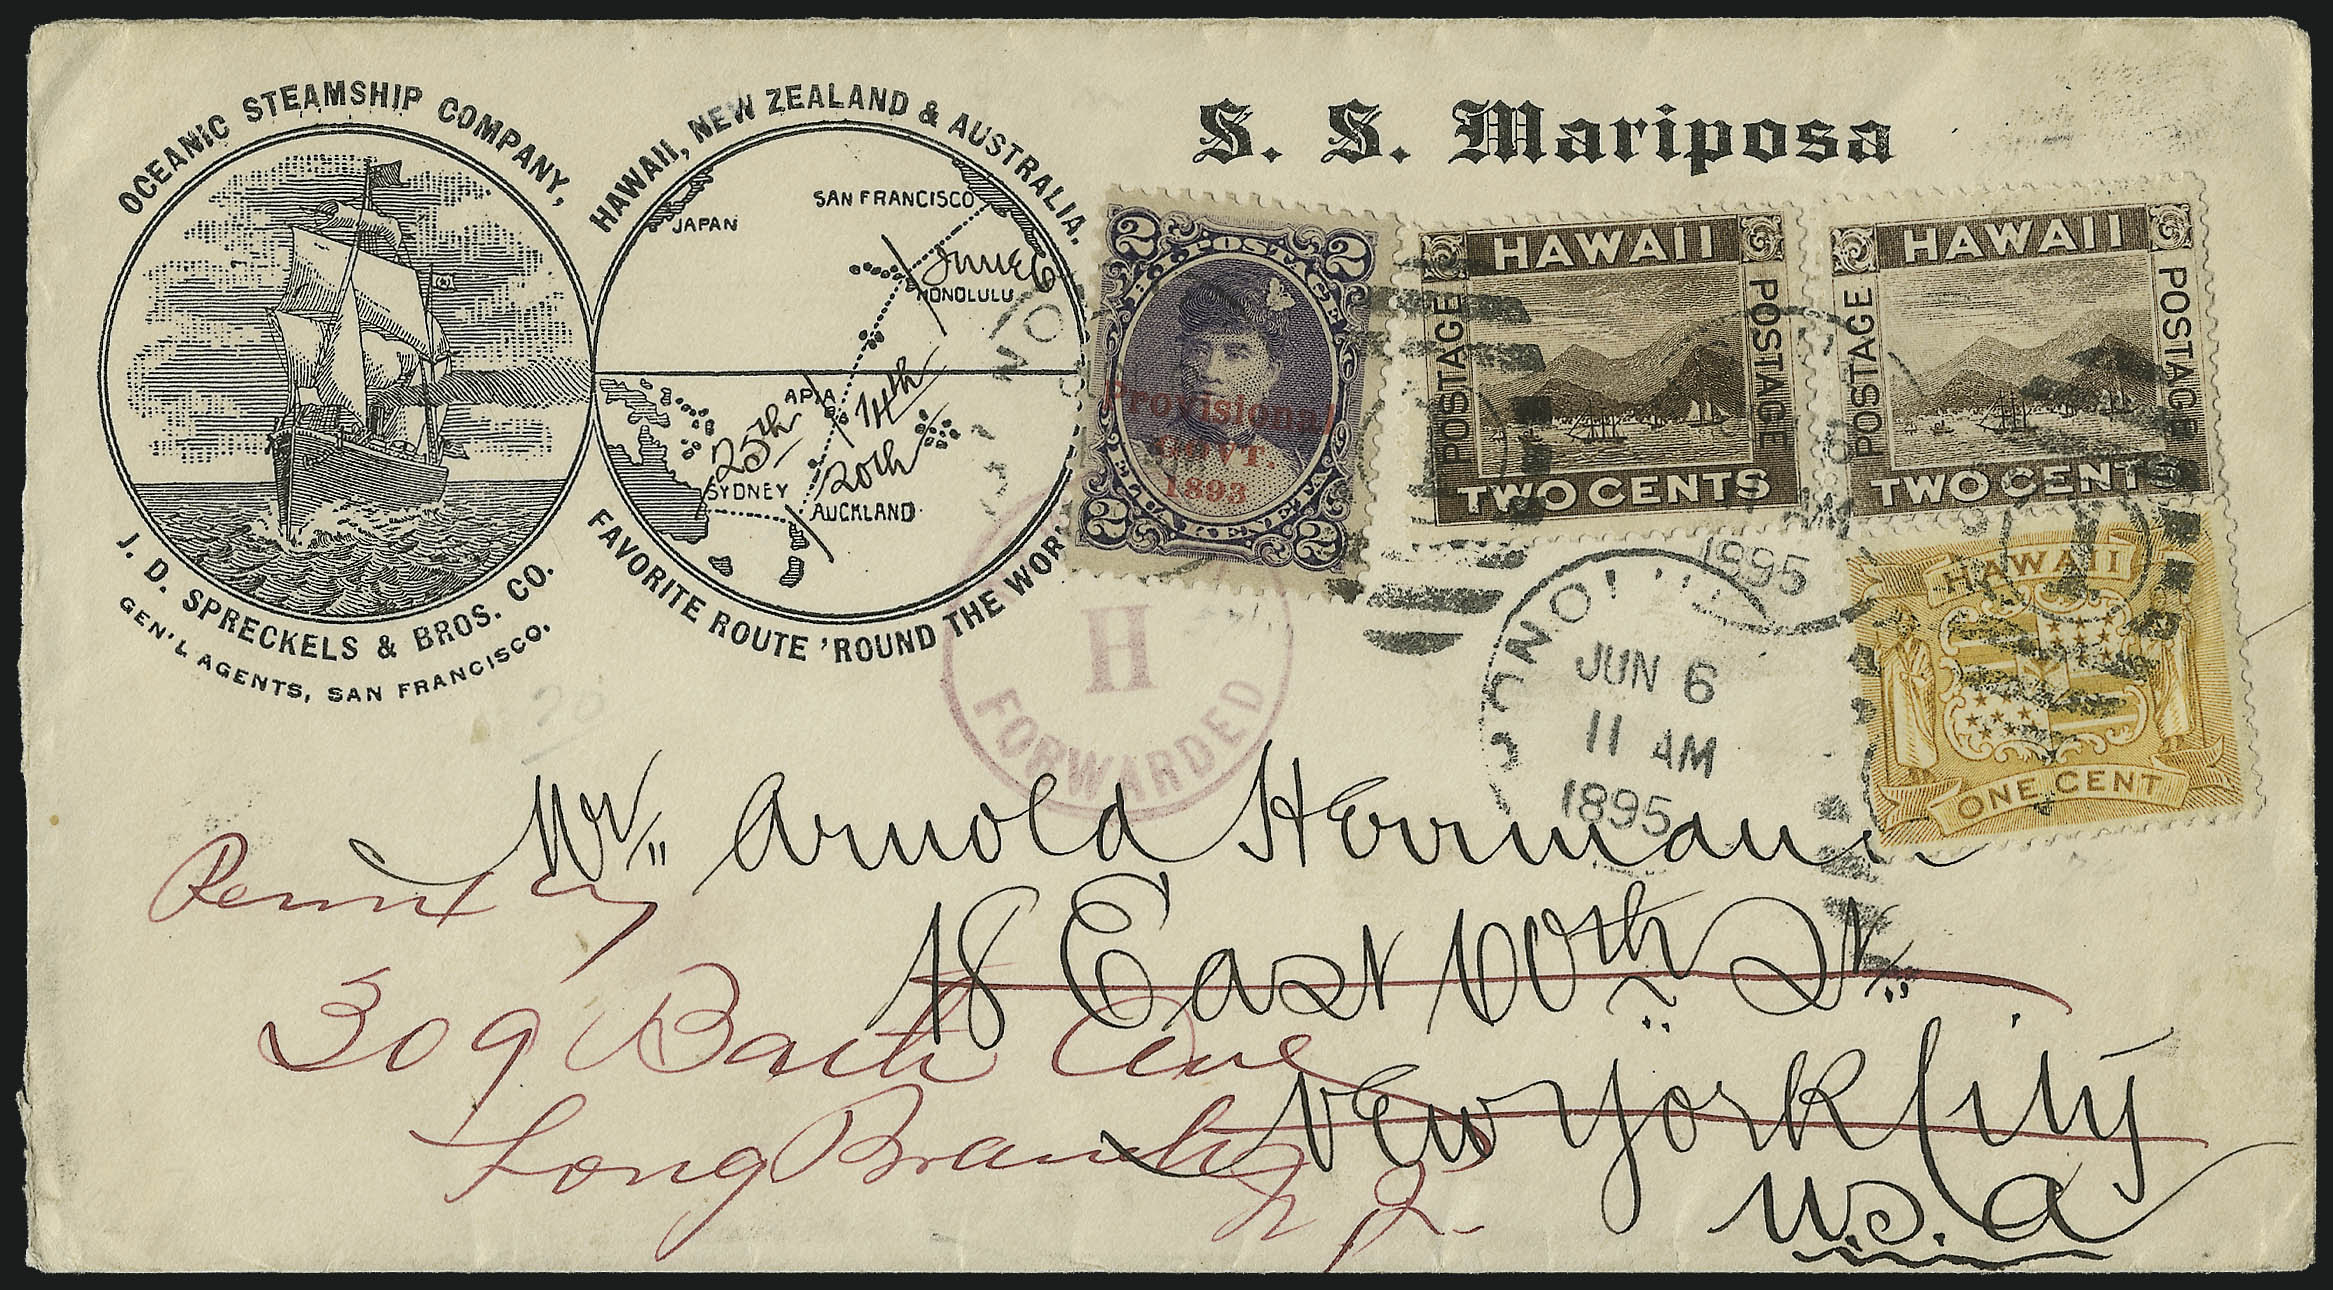 OCEANIC STEAMSHIP COMPANY,
J. D. SPRECKELS & BROS. CO.
GEN'L AGENTS, SAN FRANCISCO.
HAWAII, NEW ZEALAND & AUSTRALIA.
JAPAN
SAN FRANCISCO
June 6
HONOLULU
APIA
14th
25th
20th
SYDNEY
AUCKLAND
FAVORITE ROUTE 'ROUND THE WOR
S. S. Mariposa
2 POSTAGE 2
Provisional
GOVT.
1893
2 ELUA KENETA 2
HAWAII
POSTAGE
POSTAGE
TWO CENTS
HAWAII
POSTAGE
POSTAGE
TWO CENTS
HAWAII
ONE CENT
AM
1895
JUN 6
11 AM
1895
H
FORWARDED
Mr. Arnold Herrmann
18 East 60th St.
New York City
U.S.A
309 Bath Ave
Long Branch
N J